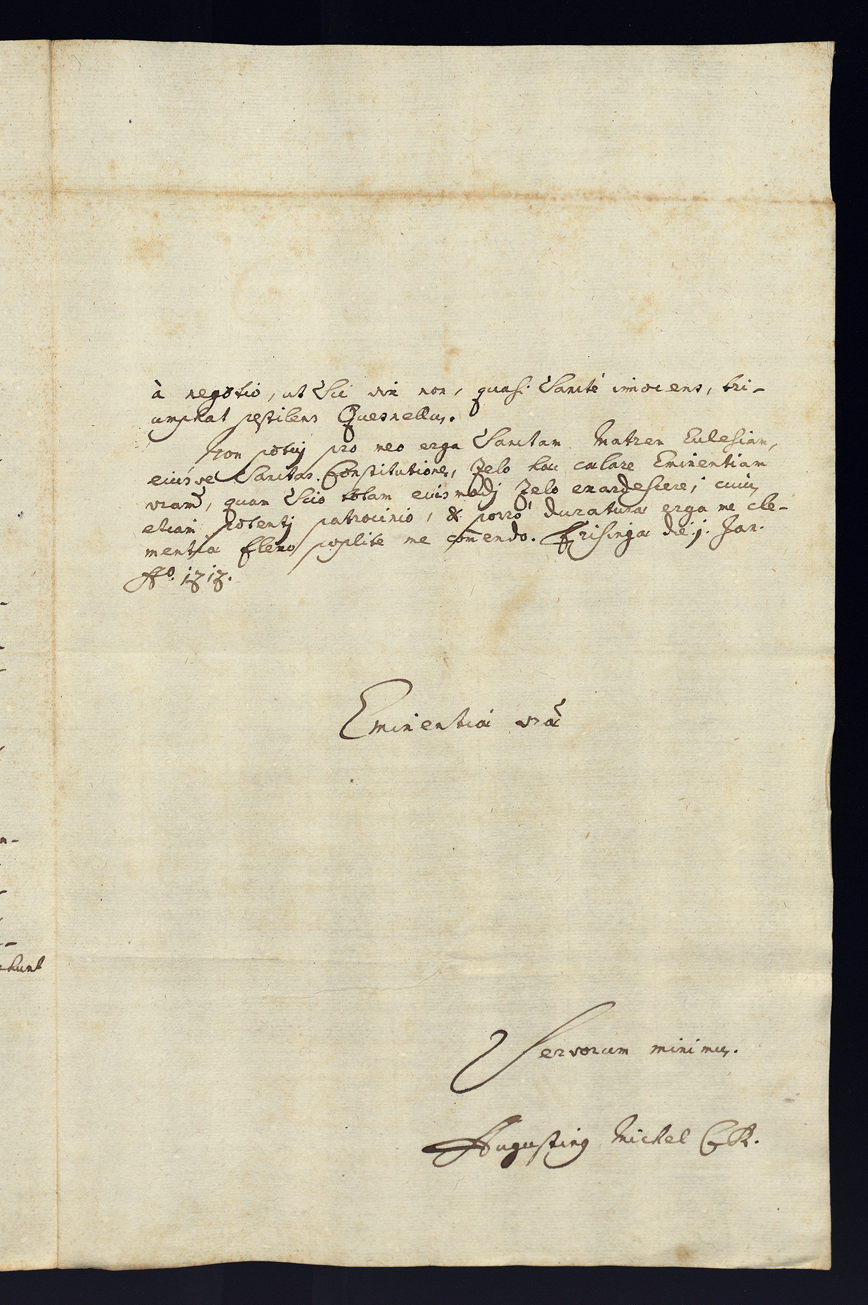 à negotio, ut sic vir non, quasi Sancté innocens, tri-
umphat pestilens Quesnellus.
Non potui pro meo erga Sanctam Matrem Ecclesiam,
eiusve Sanctas Constitutiones, Zelo hac celare Eminentiam
vram, quam scio totam eiusmodj Zelo exardescere; cuius
etiam potentj patrocinio, & porro duratura erga me cle-
mentia flexo poplite me comendo. Frisinga die j. Jan.
Ao. 1717.
Eminentiae vrae
Servorum minimus.
Augustinus Michel CR.
-hunt